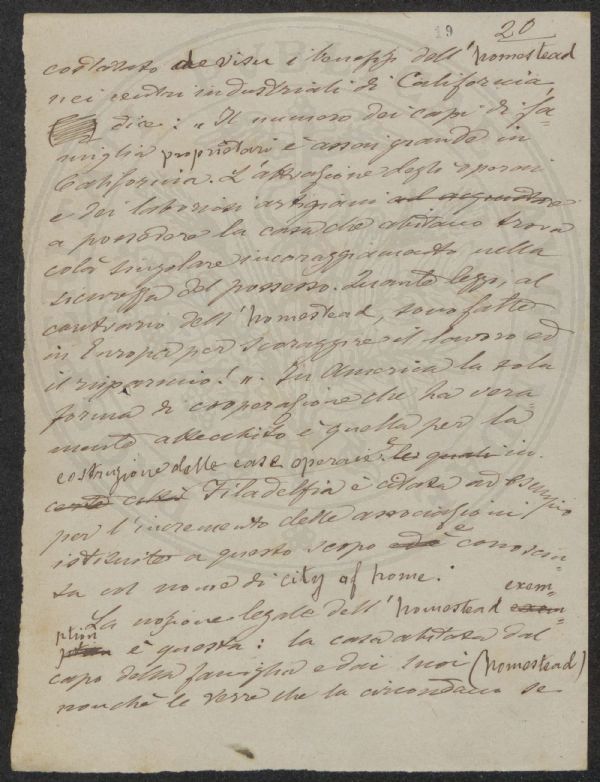 19 20
costatato de visu i beneffizi dell'homestead
nei centri industriali di California
dice: "Il numero dei capi di fa-
miglia proprietari è assai grande in
California. L'attrazione degli operai
e dei laboriosi artigiani
a possedere la casa che abitano trova
colà singolare incoraggiamento nella
sicurezza del possesso. Quante leggi, al
contrario dell'homestead, sono fatte
in Europa per scoraggire il lavoro ed
il risparmio!". In America la sola
forma di cooperazione che ha vera
mente attecchito è quella per la
costruzione delle case operaie le quali in
certe città Filadelfia è citata ad esempio
per l'incremento delle associazioni
istituite a questo scopo ed è e conosciu-
ta col nome di city of home.
La nozione legale dell'homestead exem-
ption è questa: la casa abitata dal
capo della famiglia e dai suoi (homestead)
nonchè le terre che la circondano se